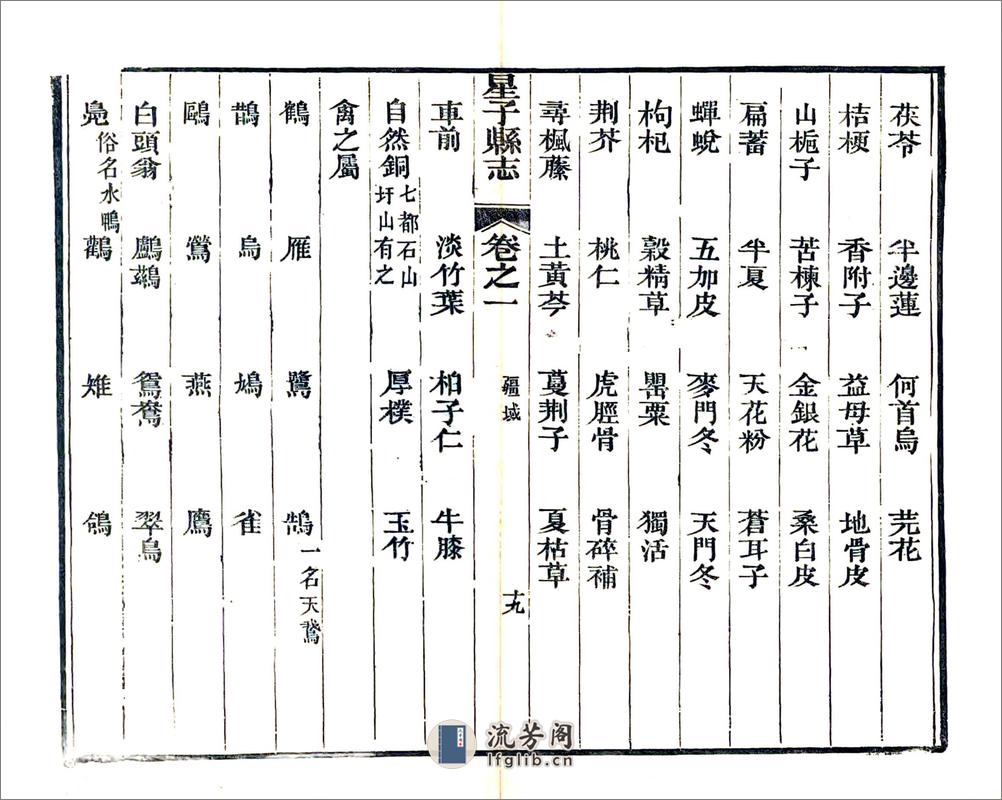 茯苓　半邊蓮　何首烏　芫花
桔梗　香附子　益母草　地骨皮
山梔子　苦楝子　金銀花　桑白皮
扁蓄　半夏　天花粉　蒼耳子
蟬蛻　五加皮　麥門冬　天門冬
枸杞　穀精草　罌粟　獨活
荆芥　桃仁　虎脛骨　骨碎補
尋楓藤　土黃芩　蔓荆子　夏枯草
星子縣志　卷之一　疆域　十九
車前　淡竹葉　柏子仁　牛膝
自然銅七都石山圩山有之　厚樸　玉竹
禽之屬
鶴　雁　鷺　鵠一名天鵞
鵲　烏　鳩　雀
鷗　鶯　燕　鷹
白頭翁　鸕鷀　鴛鴦　翠鳥
鳧俗名水鴨　鸛　雉　鴿
流芳阁
lfglib.cn